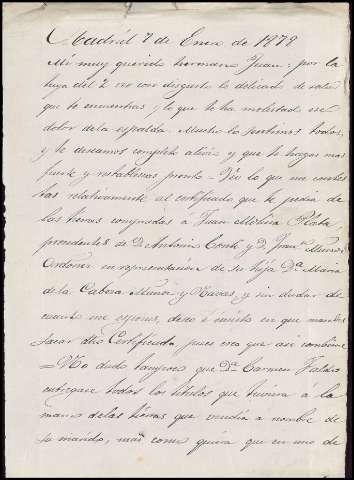 Madrid 7 de Enero de 1878
Mi muy querido hermano Juan: por la
tuya del 2 veo con disgusto lo delicado de salud
que te encuentras y lo que te ha molestado ese
dolor de la espalda. Mucho lo sentimos todos,
y te deseamos completo alivio y que te hagas mas
fuerte y restablezcas pronto = Veo lo que me contes
tas relativamente al certificado que te pedia de
las tierras compradas á Juan Molina Plata,
procedentes de D. Antonio Conde y D. Juan Muñoz
en representacion de su hija Dª Maria
de la Cabeza Muñoz y Navas, y sin dudar de
cuanto me espones, deseo é insisto en que mandes
sacar dho Certificado, pues creo que asi combiene
= No dudo tampoco que Dª Carmen Valdes
entregase todos los titulos que tuviera á la
mano de las tierras que vendia á nombre de
su marido, mas como quiera que en uno de